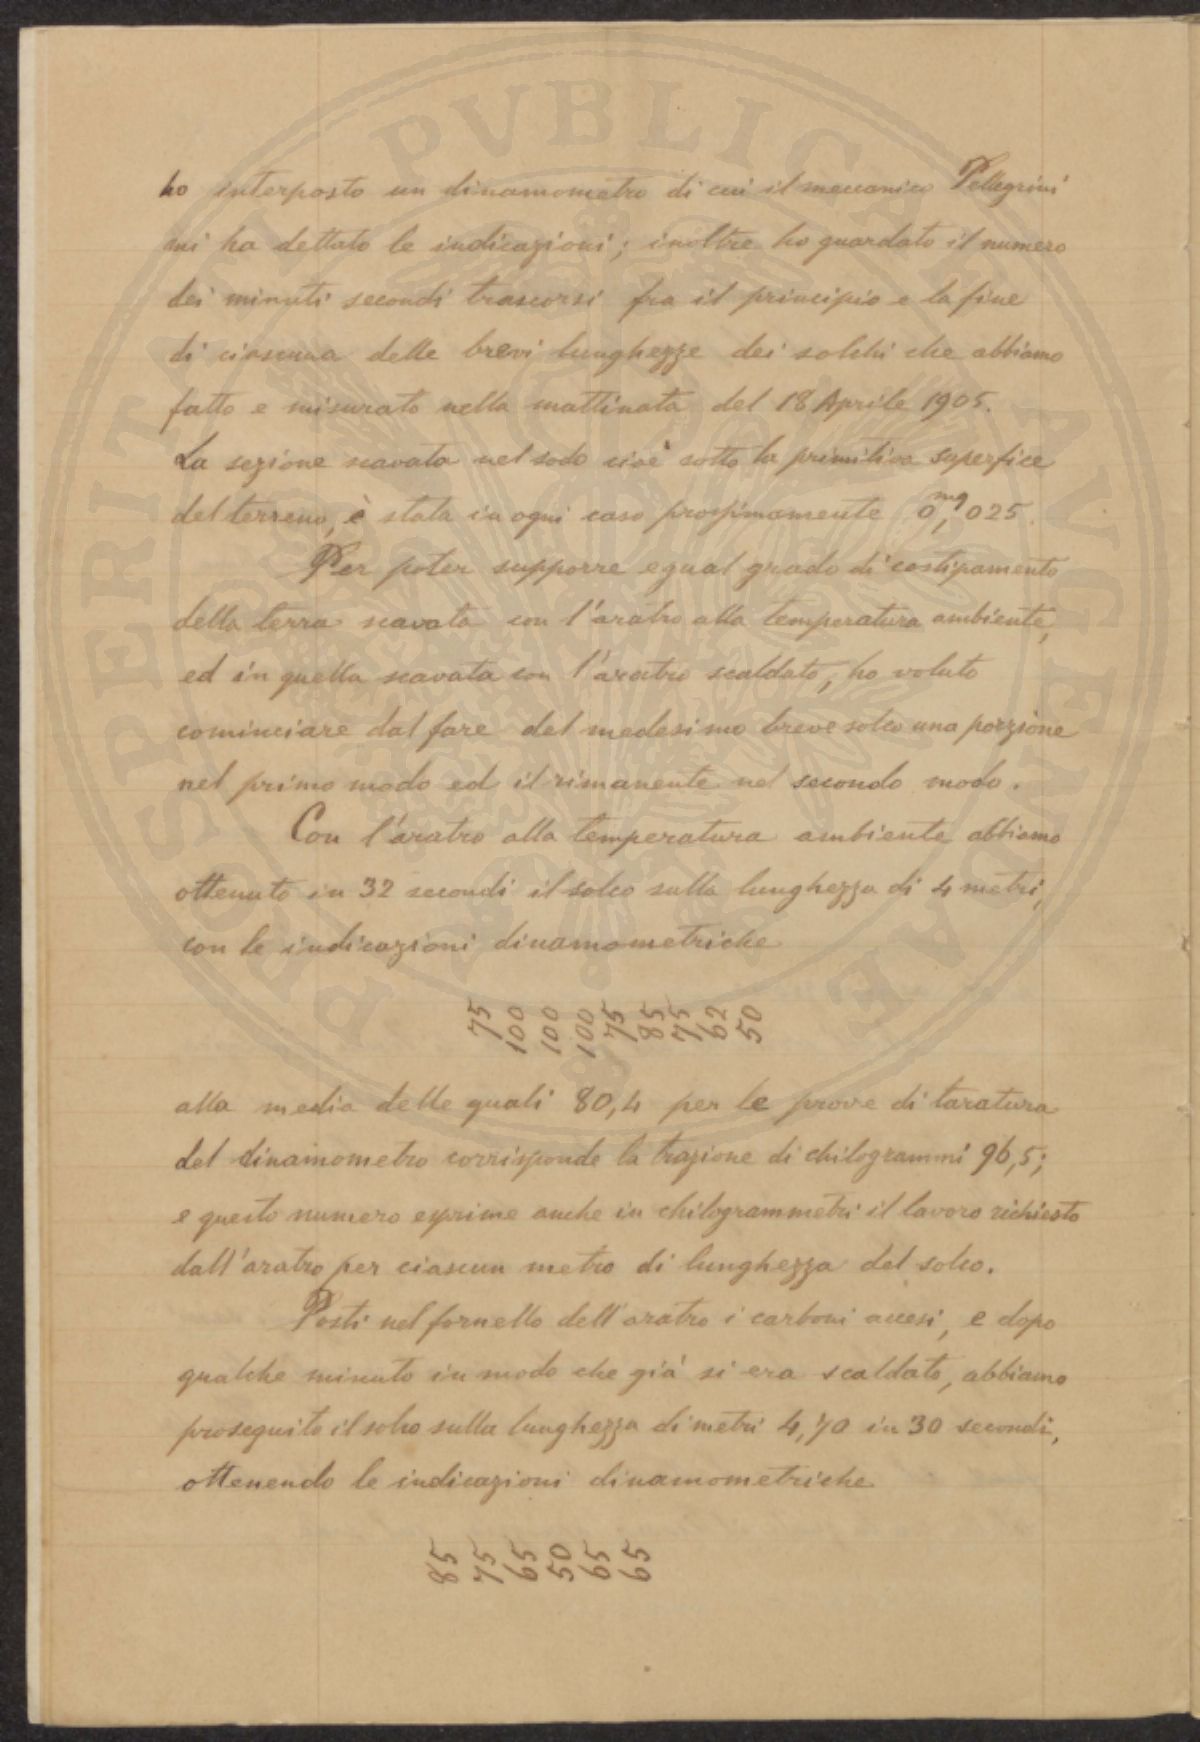 ho interposto un dinamometro di cui il meccanico Pellegrini
mi ha dettato le indicazioni; inoltre ho guardato il numero
dei minuti secondi trascorsi fra il principio e la fine
di ciascuna delle brevi lunghezze dei solchi che abbiamo
fatto e misurato nella mattinata del 18 Aprile 1905.
La sezione scavata nel sodo cioè sotto la primitiva superfice
del terreno, è stata in ogni caso prossimamente 0,mq 025.
Per poter supporre egual grado di costipamento
della terra scavata con l'aratro alla temperatura ambiente,
ed in quella scavata con l'aratro scaldato, ho voluto
cominciare dal fare del medesimo breve solco una porzione
nel primo modo ed il rimanente nel secondo modo.
Con l'aratro alla temperatura ambiente abbiamo
ottenuto in 32 secondi il solco sulla lunghezza di 4 metri,
con le indicazioni dinamometriche
75 100 100 100 75 85 75 62 50
alla media delle quali 80,4 per le prove di taratura
del dinamometro corrisponde la trazione di chilogrammi 96,5;
e questo numero esprime anche in chilogrammetri il lavoro richiesto
dall'aratro per ciascun metro di lunghezza del solco.
Posti nel fornello dell'aratro i carboni accesi, e dopo
qualche minuto in modo che già si era scaldato, abbiamo
proseguito il solco sulla lunghezza di metri 4,70 in 30 secondi,
ottenendo le indicazioni dinamometriche
85 75 65 50 65 65
PROSPERITATI PVBLICAE AVGENDAE